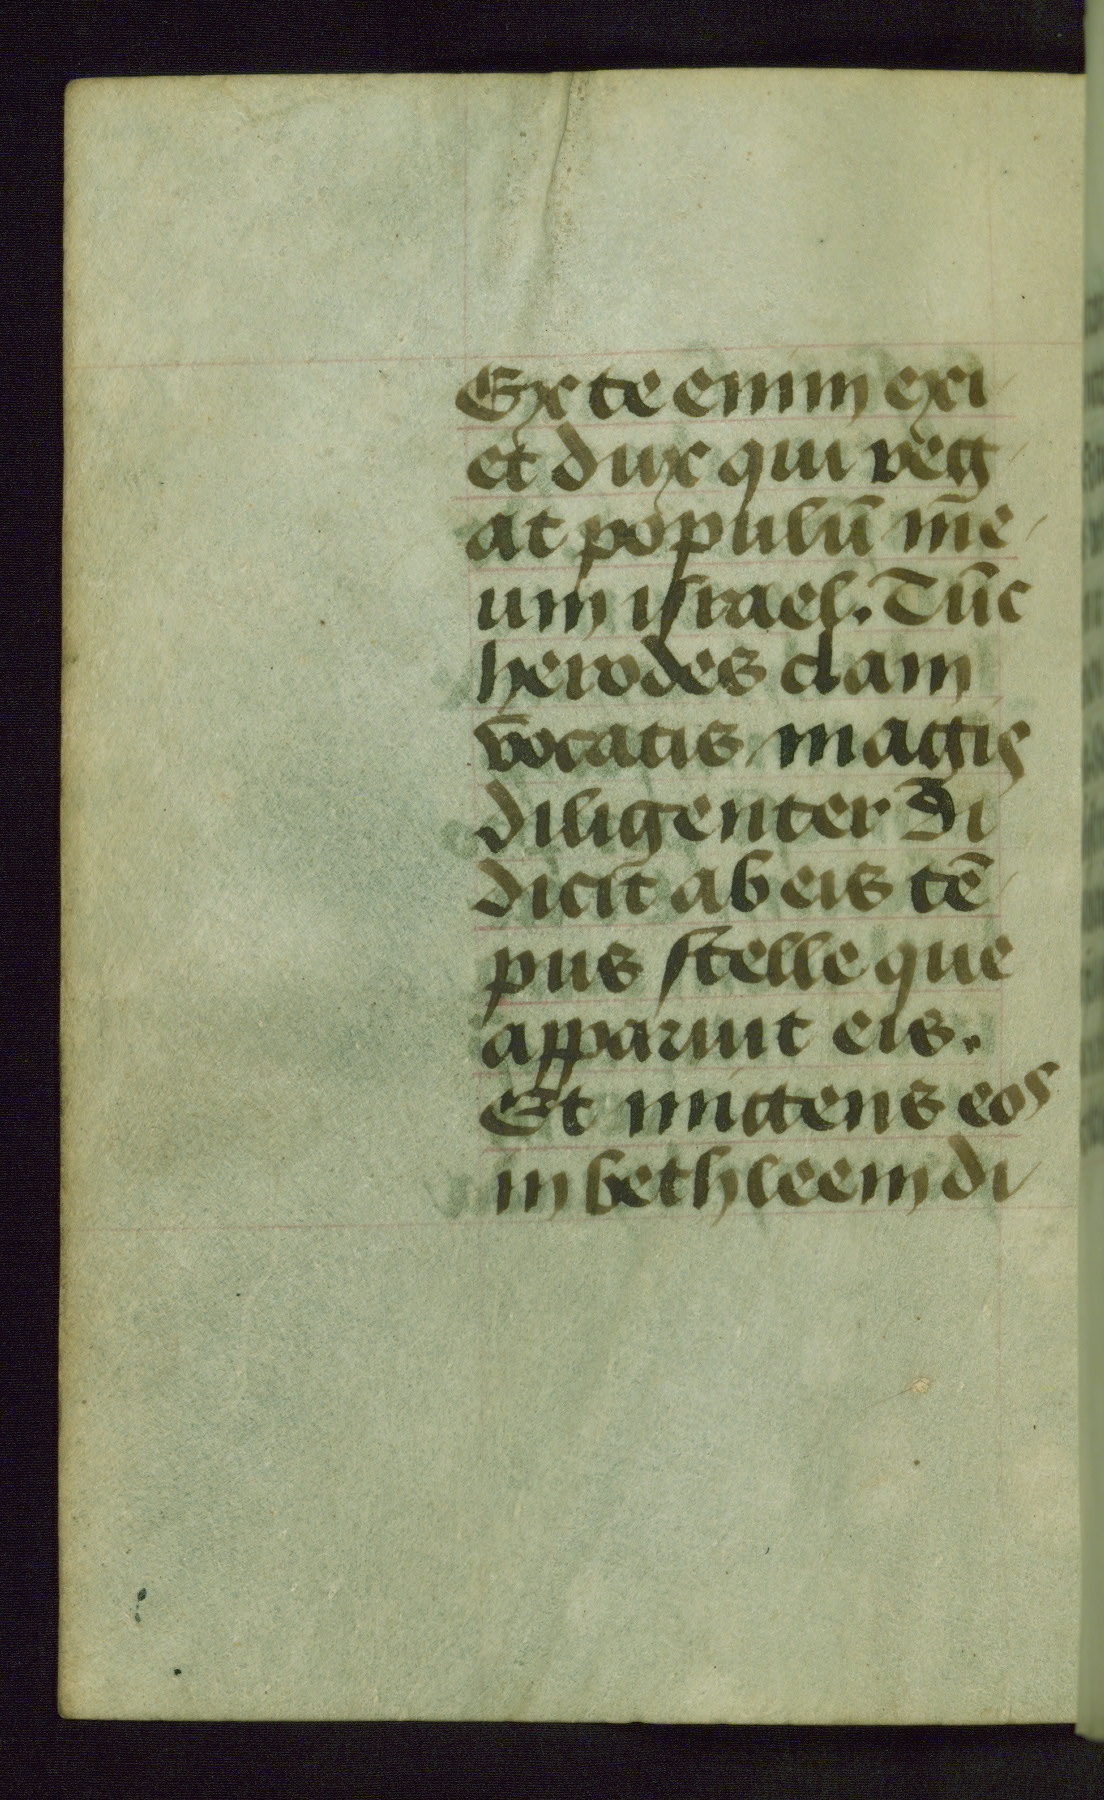 Ex te enim exi
et dux qui reg
at populū me
um israel. Tūc
herodes clam
vocatis magis
diligenter di
dicit ab eis tē
pus stelle que
apparuit eis.
Et mictens eos
in bethleem di